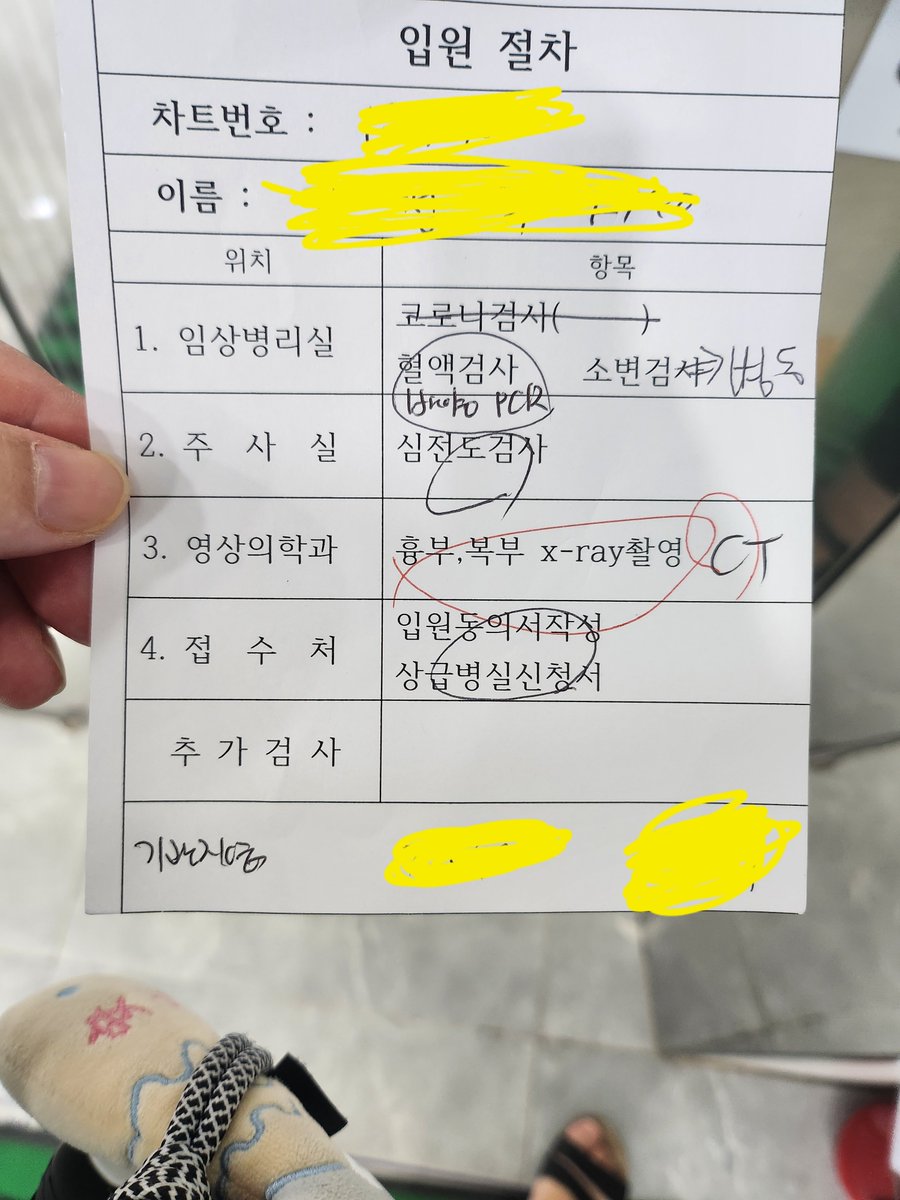 입원 절차
차트번호 :
이름 :
위치 항목
1. 임상병리실
코로나검사( )
혈액검사 소변검사 병동
배양 PCR
2. 주 사 실 심전도검사
3. 영상의학과 흉부,복부 x-ray촬영 CT
4. 접 수 처
입원동의서작성
상급병실신청서
추 가 검 사